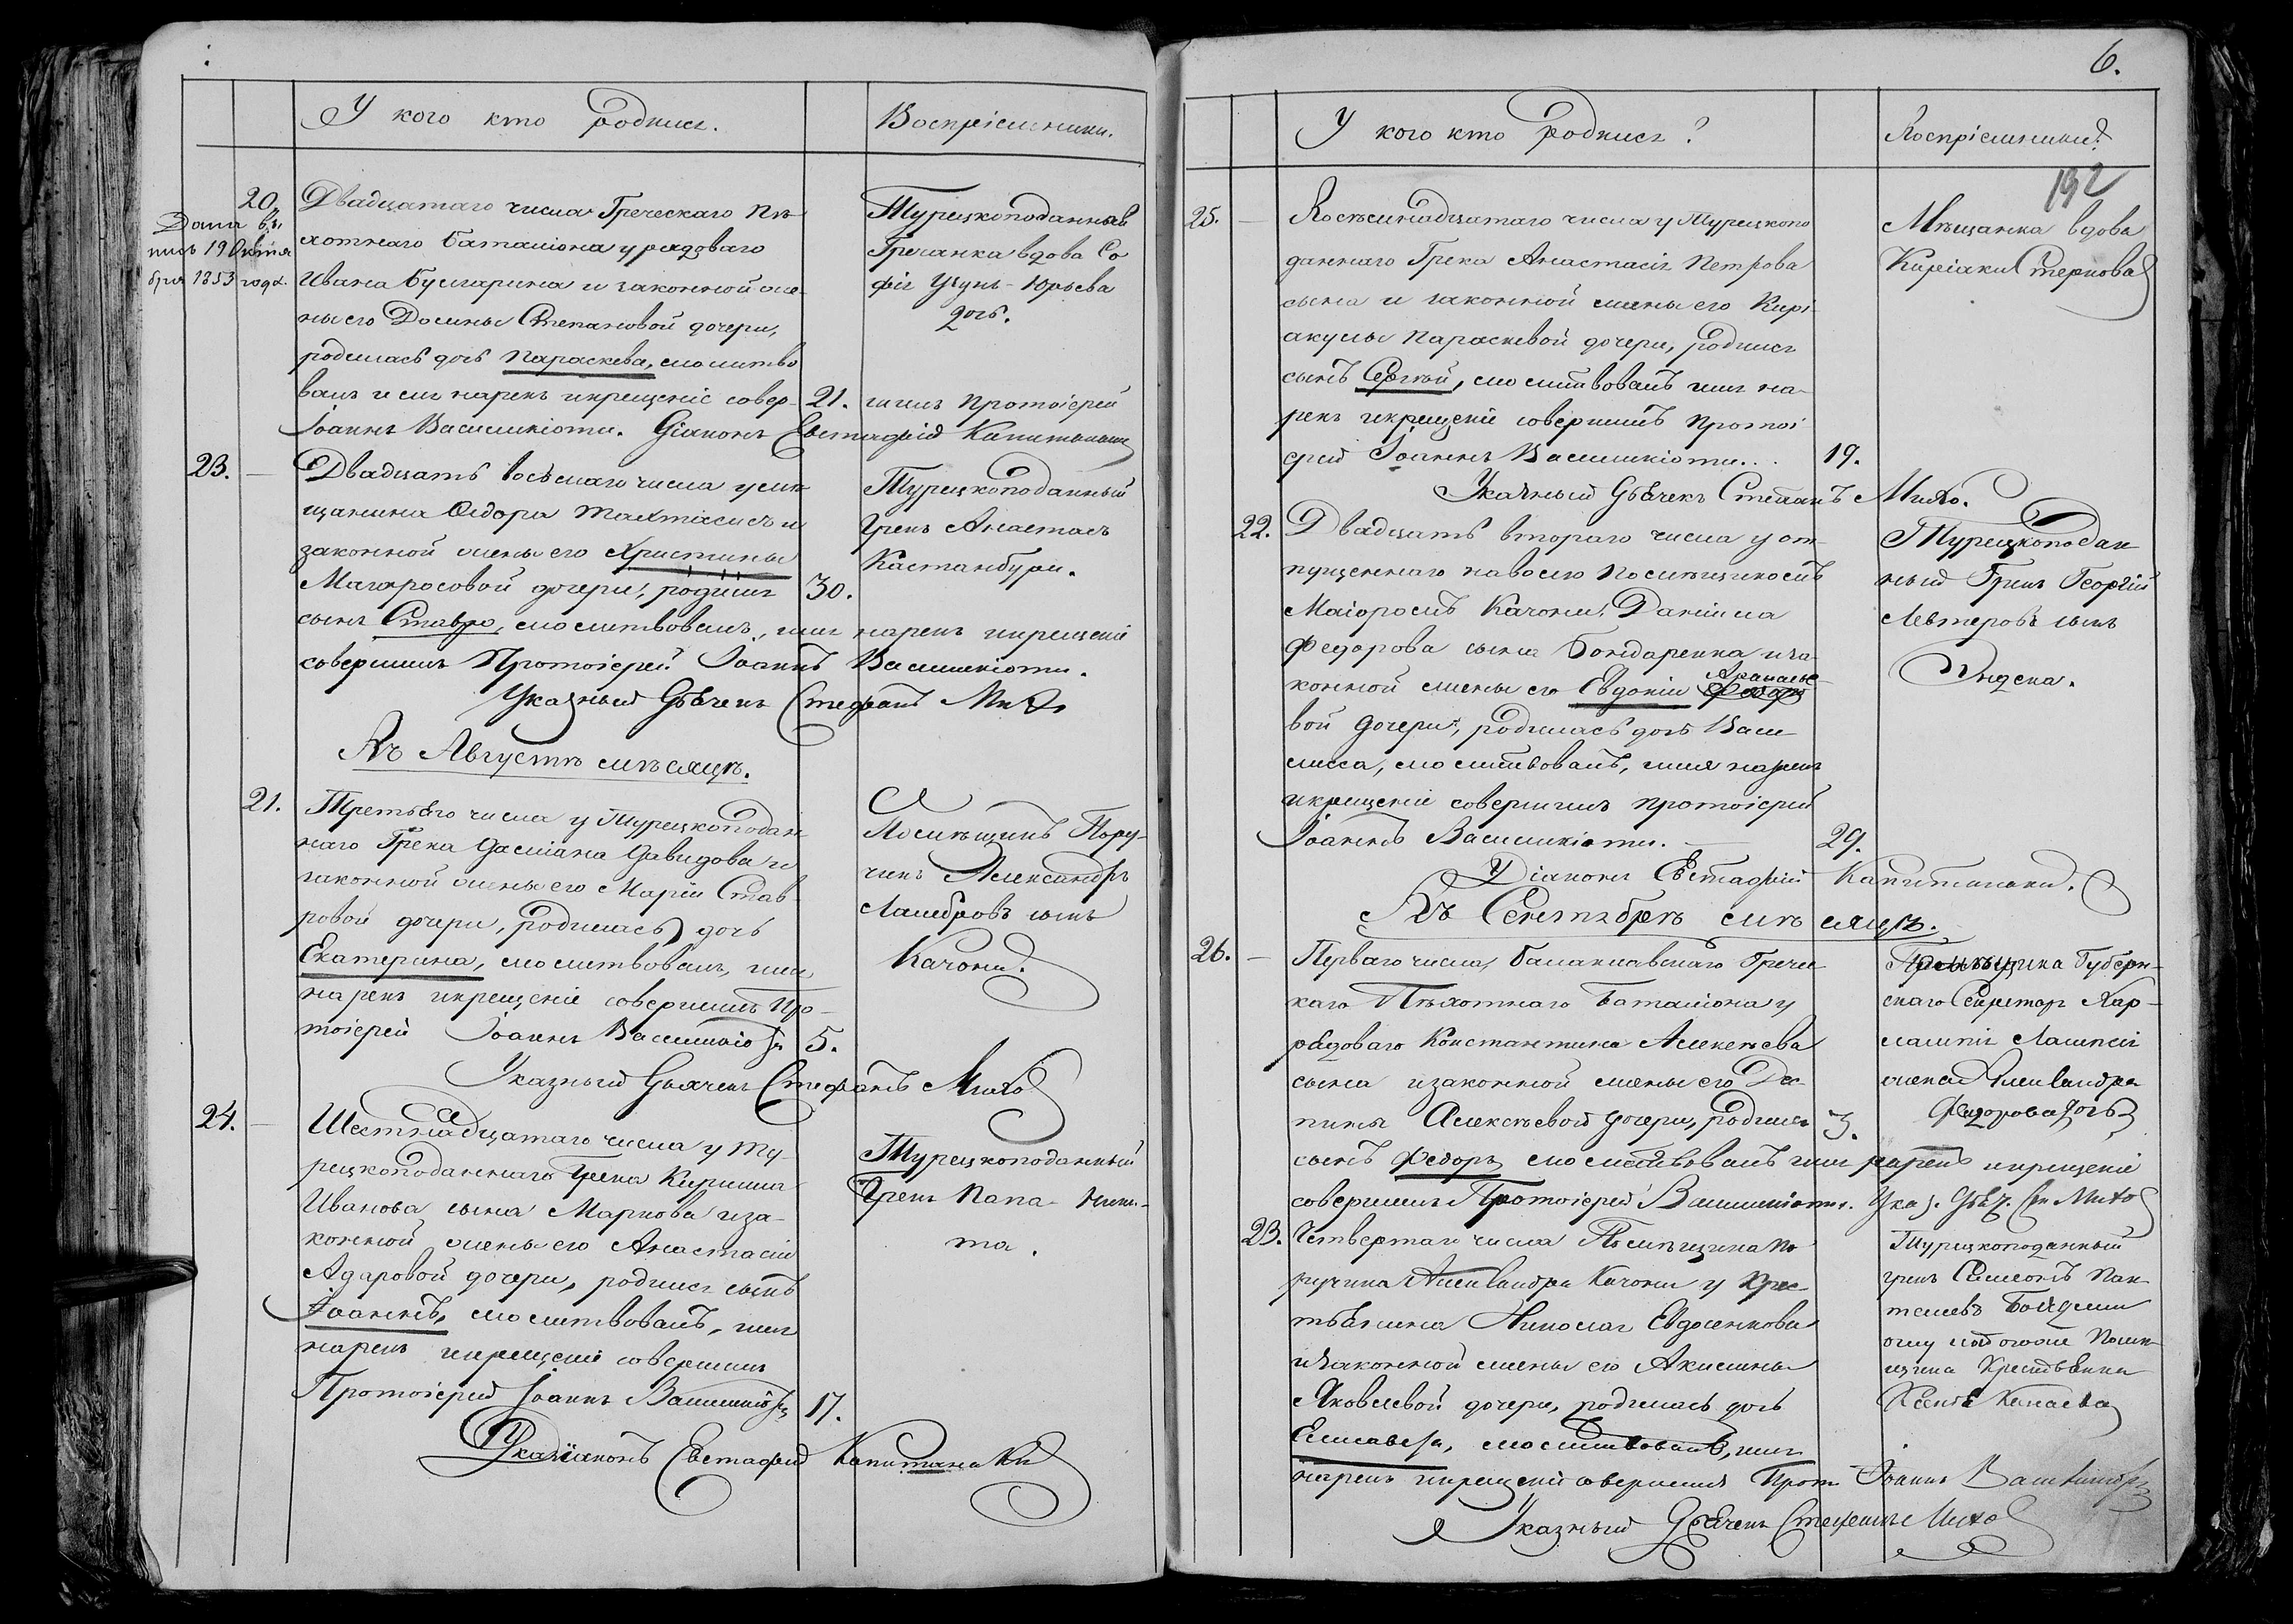 У кого кто родился.
Воспріемники.
20.
Дана вы
пись 19 Октя
бря 1853 года.
Двадцатаго числа Греческаго пѣ
хотнаго баталіона у рядоваго
Ивана Булгарина и законной же
ны его Домны Степановой дочери,
родилась дочь Параскева, молитво
валъ имя нарекъ и крещеніе совер- 21. шилъ Протоіерей
Іоаннъ Василикіоти. Діаконъ Евстафій Капитанаки
Турецкоподанная
Гречанка вдова Со
фія Узунъ-Юрьева
дочь.
23.
Двадцать восьмаго числа у мѣ
щанина Ѳедора
законной жены его Христины
дочери, родился 30.
сынъ Ставро, молитвовалъ, имя нарекъ и крещеніе
совершилъ Протоіерей Іоаннъ Василикіоти.
Указный Дьячекъ Стефанъ
Турецкоподанный
Грекъ Анастасъ
Кастанбули.
Въ Августѣ мѣсяцѣ.
21.
Третьяго числа у Турецкоподан
наго Грека Даміана Давидова и
законной жены его Маріи Став
ровой дочери, родилась дочь
Екатерина, молитвовалъ, имя
нарекъ и крещеніе совершилъ Про-
тоіерей Іоаннъ Василикіоти 5.
Указный Дьячекъ Стефанъ
Помѣщикъ Пору-
чикъ Александръ
Ламбровъ сынъ
Качони.
24.
Шестнадцатаго числа у Ту-
рецкоподаннаго Грека Кирилла
Иванова сына Маркова и за-
конной жены его Анастасіи
дочери, родился сынъ
Іоаннъ, молитвовалъ, имя
нарекъ и крещеніе совершилъ
Протоіерей Іоаннъ Василикіоти 17.
Діаконъ Евстафій Капитанаки
Турецкоподанный
Грекъ Папа-Ники-
та.
6.
У кого кто родился?
Воспріемники?
192
25.
Восемнадцатаго числа у Турецкопо
даннаго Грека Анастасія Петрова
сына и законной жены его Кирі
акулы Параскевой дочери, родился
сынъ Сергѣй, молитвовалъ имя на-
рекъ и крещеніе совершилъ Протоі
ерей Іоаннъ Василикіоти... 19.
Указный Дьячекъ Стефанъ
Мѣщанка вдова
Киріаки Стернова
22.
Двадцать втораго числа у от-
пущеннаго на волю Помѣщикомъ
Маіоромъ Качони, Даніила
Федорова сына Бондаренка и за-
конной жены его Евдокіи Аѳанасье
вой дочери, родилась дочь Васи
лисса, молитвовалъ, имя нарекъ
и крещеніе совершилъ Протоіерей
Іоаннъ Василикіоти. 29.
Діаконъ Евстафій Капитанаки.
Турецкоподан
ный Грекъ Георгій
Левтеровъ сынъ
Въ Сентябрѣ мѣсяцѣ.
26.
Перваго числа, Балаклавскаго Гречес
каго Пѣхотнаго Баталіона у
рядоваго Константина Алексѣева
сына и законной жены его Дес-
пины Алексѣевой дочери, родился 3.
сынъ Федоръ молитвовалъ имя нарекъ и крещеніе
совершилъ Протоіерей Василикіоти. Указ. Дьяч.
Губерн-
скаго Секретаря Хар-
лампія Лампси
жена Александра
Федорова дочь
23.
Четвертаго числа Помѣщика По
ручика Александра Качони у Крес
тьянина Николая Евдокенкова
и законной жены его Акилины
Яковлевой дочери, родилась дочь
Елисавета, молитвовалъ, имя
нарекъ и крещеніе совершилъ Прот. Іоаннъ Василикіоти
Указный Дьячекъ Стефанъ
Турецкоподанный
грекъ Симеонъ Пан
телеевъ
Помѣ
щика Крестьянка